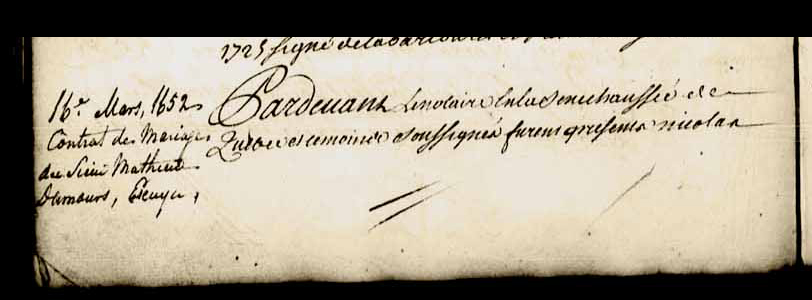 1725 signé de
16e. Mars, 1652
Contrat de Mariage
du Sieur Mathieu
Damours, Ecuyer,
Pardevant Lenotaire Enla Senechaussée de
Quebec et temoines Soussignés furent presents nicolas